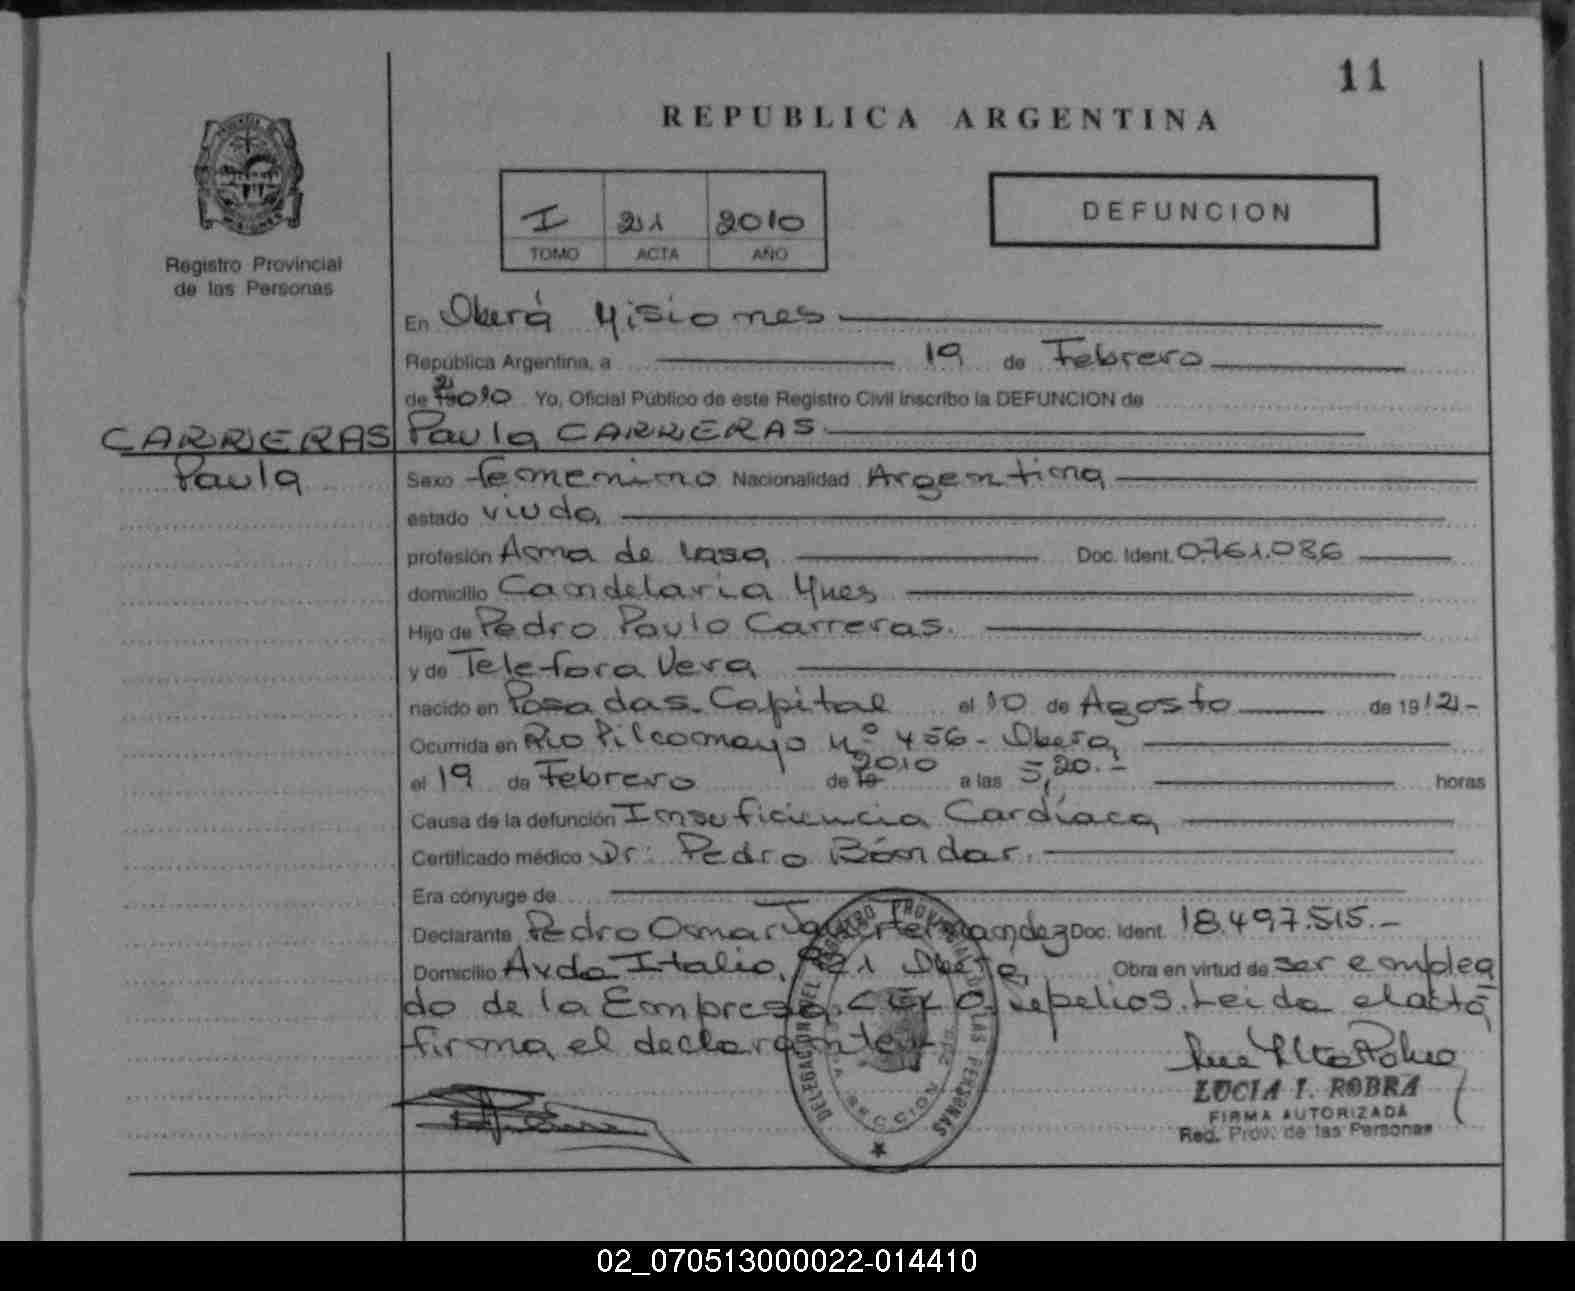 11
REPUBLICA ARGENTINA
I 21 2010
TOMO ACTA AÑO
DEFUNCION
Registro Provincial
de las Personas
En Oberá Misiones
República Argentina, a 19 de Febrero
de 2010 Yo, Oficial Público de este Registro Civil inscribo la DEFUNCION de
CARRERAS Paula CARRERAS
Paula
Sexo femenino Nacionalidad Argentina
estado viuda
profesión Ama de casa Doc. Ident. 0.761.086
domicilio Candelaria Mnes
Hijo de Pedro Paulo Carreras.
y de Telefora Vera
nacido en Posadas. Capital el 10 de Agosto de 1912-
Ocurrida en Rio Pilcomayo nº 456- Obera
el 19 de Febrero de 2010 a las 5,20.- horas
Causa de la defunción Insuficiencia Cardíaca
Certificado médico Dr: Pedro Bóndar.
Era cónyuge de
Declarante Pedro Osmar Fernandez Doc. Ident. 18.497.515.-
Domicilio Avda Italia, Obera Obra en virtud de ser emplea
do de la Empresa sepelios. Leida el acta
firma el declarante
DELEGACION DEL REGISTRO PROVINCIAL DE LAS PERSONAS
SECCION
LUCIA I. ROBRA
FIRMA AUTORIZADA
Reg. Prov. de las Personas
02_070513000022-014410